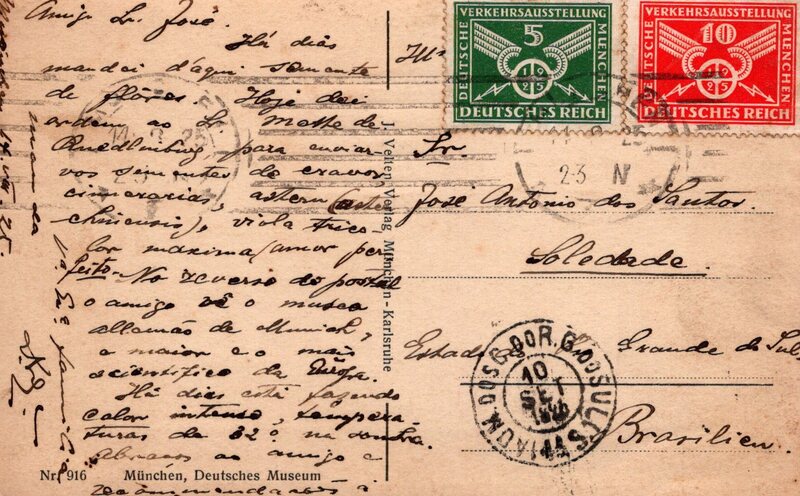 Amigo Sr. José.
Há dias
mandei d'aqui semente
de flôres. Hoje dei
ordem ao Sr. Mette de
Quedlinburg para enviar
vos sementes de cravos
cinerarias, astern (aster
chinensis), viola trico-
lor maxima (amor per
feito. No reverso do postal
o amigo vê o museu
allemão de Munich,
o maior e o mais
scientifico da Europa.
Há dias está fazendo
calor intenso, tempera
turas de 32° na sombra.
Abraços ao amigo e
recommendações á
Nr. 916 München, Deutsches Museum
J. Velten, Verlag, München - Karlsruhe
DEUTSCHE VERKERSAUSSTELLUNG MUENCHEN
5
1925
DEUTSCHES REICH
DEUTSCHE VERKEHRSAUSSTELLUNG MUENCHEN
10
1925
DEUTSCHES REICH
23 N
Illmo
Sr.
José Antonio dos Santos.
Soledade.
Estado Grande do Sul
Brasilien.
10
SET